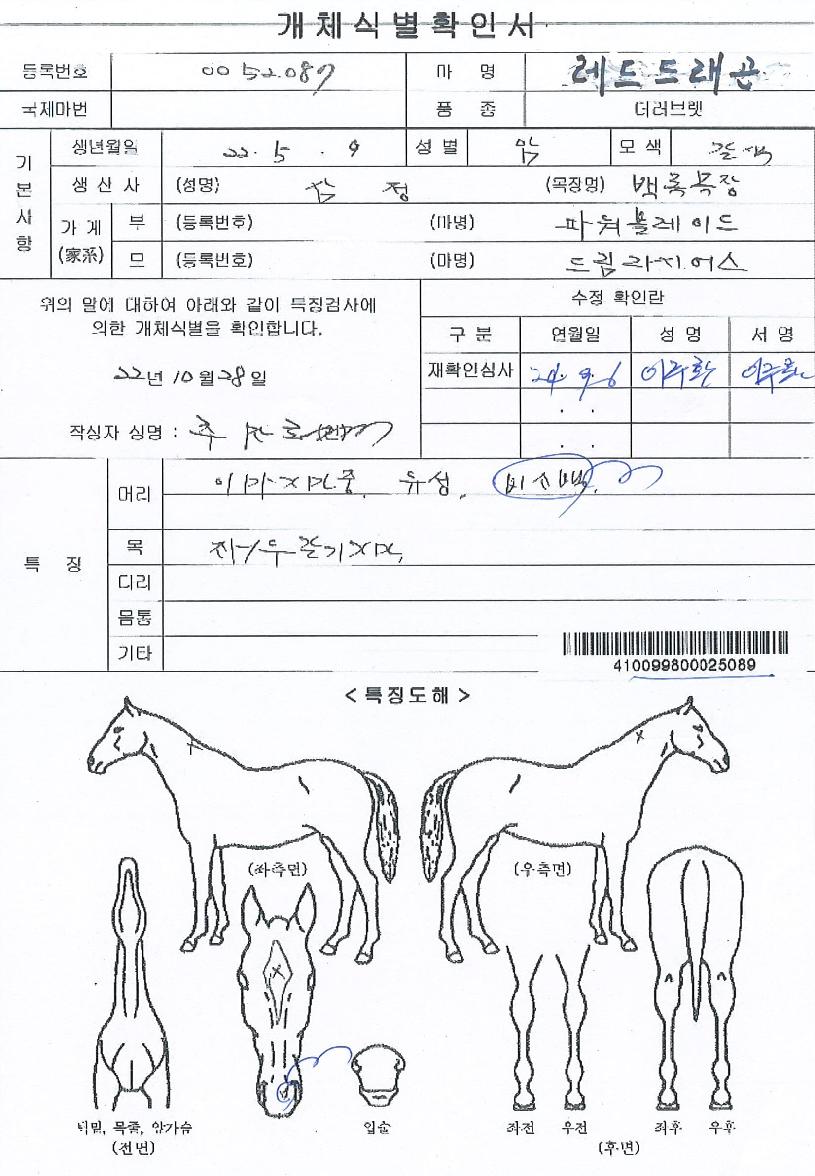 개체식별확인서
등록번호 0052089 마 명 레드드래곤
국제마번 품 종 더러브렛
기본사항
생년월일 22. 5 . 9 성 별 암 모 색 갈색
생 산 사 (성명) (목장명) 백록목장
가 계 (家系) 부 (등록번호) (마명) 파워블레이드
모 (등록번호) (마명) 드림라지어스
위의 말에 대하여 아래와 같이 특징검사에
의한 개체식별을 확인합니다.
22년 10월 28일
작성자 성명 :
수정 확인란
구 분 연월일 성 명 서 명
재확인심사 24. 9. 6 이주환 이주환
. .
. .
특 징
머리 이마지미중, 유성, 비소백,
목 좌우갈기지미,
다리
몸통
기타
410099800025089
< 특징도해 >
(좌측면) (우측면)
턱밑, 목줄, 앞가슴
(전면)
입술
좌전 우전 좌후 우후
(후면)